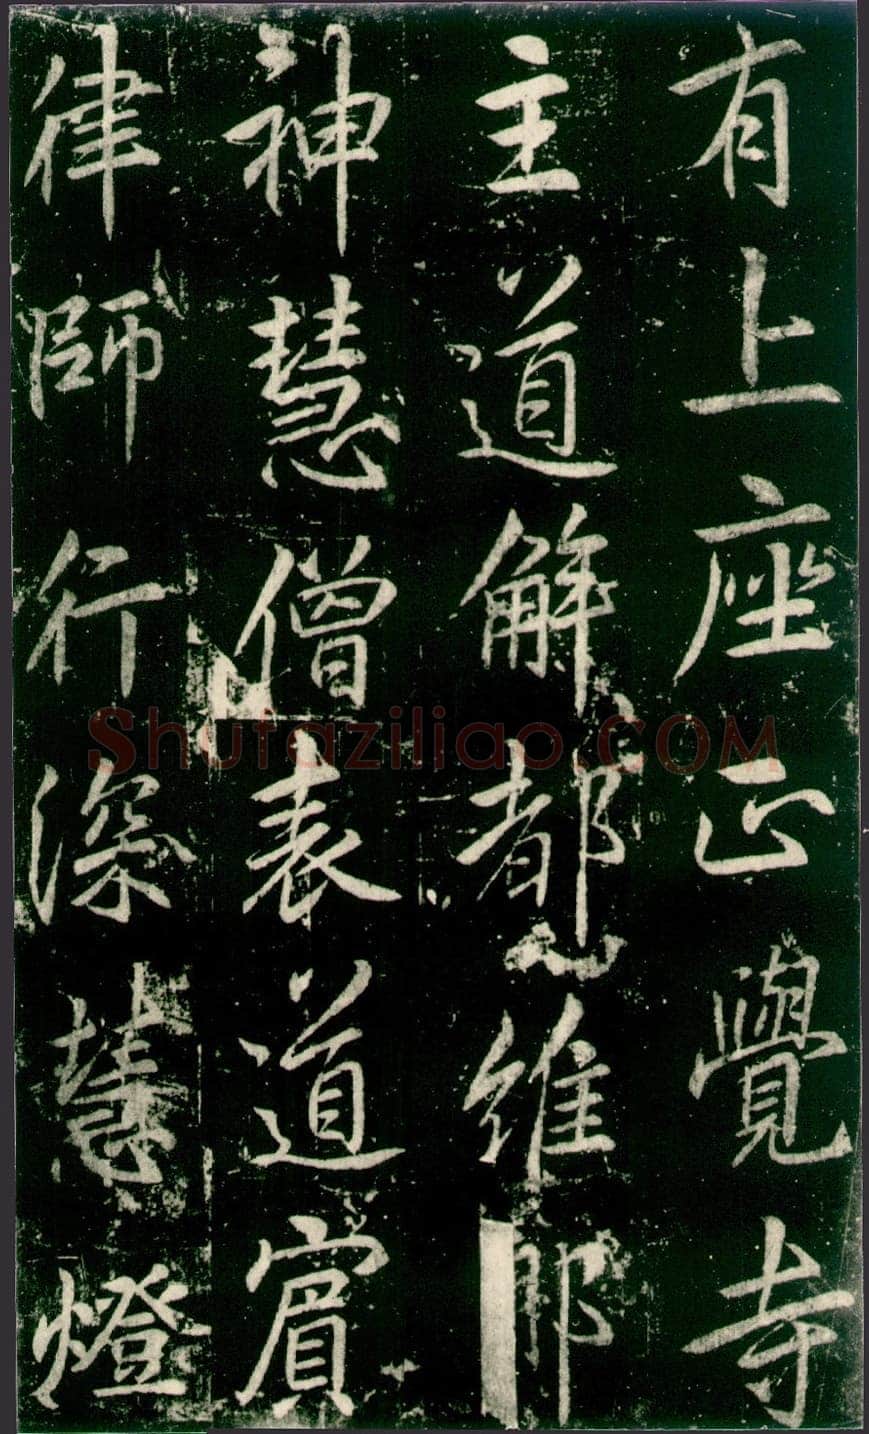 有上座正覺寺
主道解都維那
神慧僧表道賓
律師行深慧燈
Shufaziliao.COM